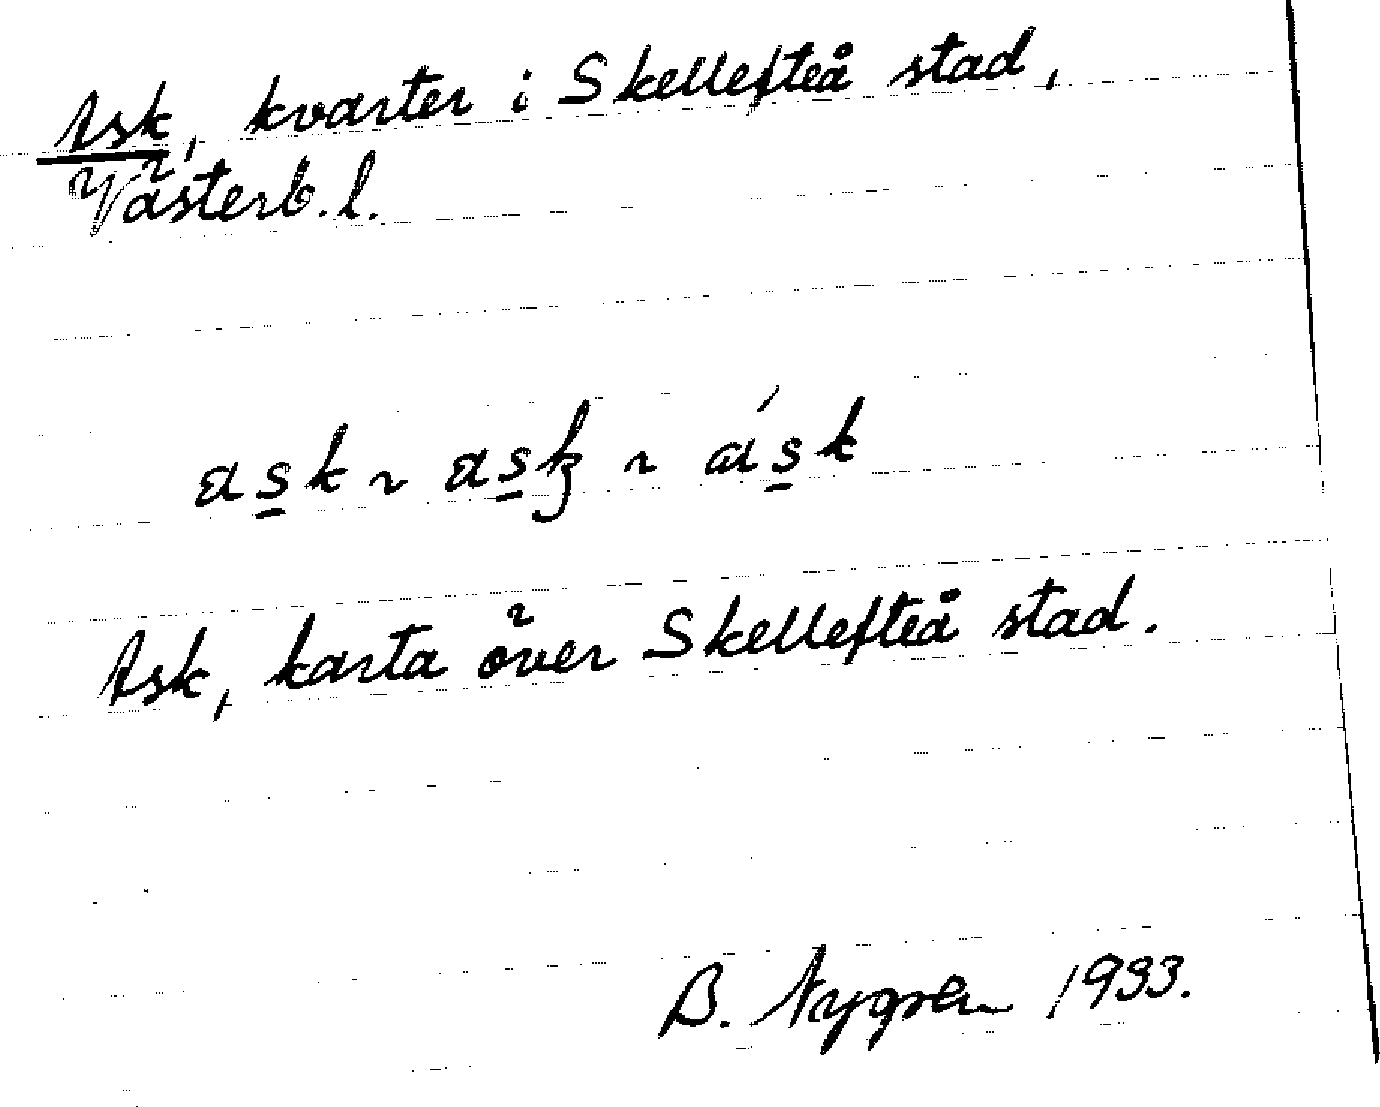 Ask, kvarter i Skellefteå stad,
Västerb. l.
as̲k ~ as̲ꝁ ~ ás̲k
Ask, karta över Skellefteå stad.
B. Nygren 1933.